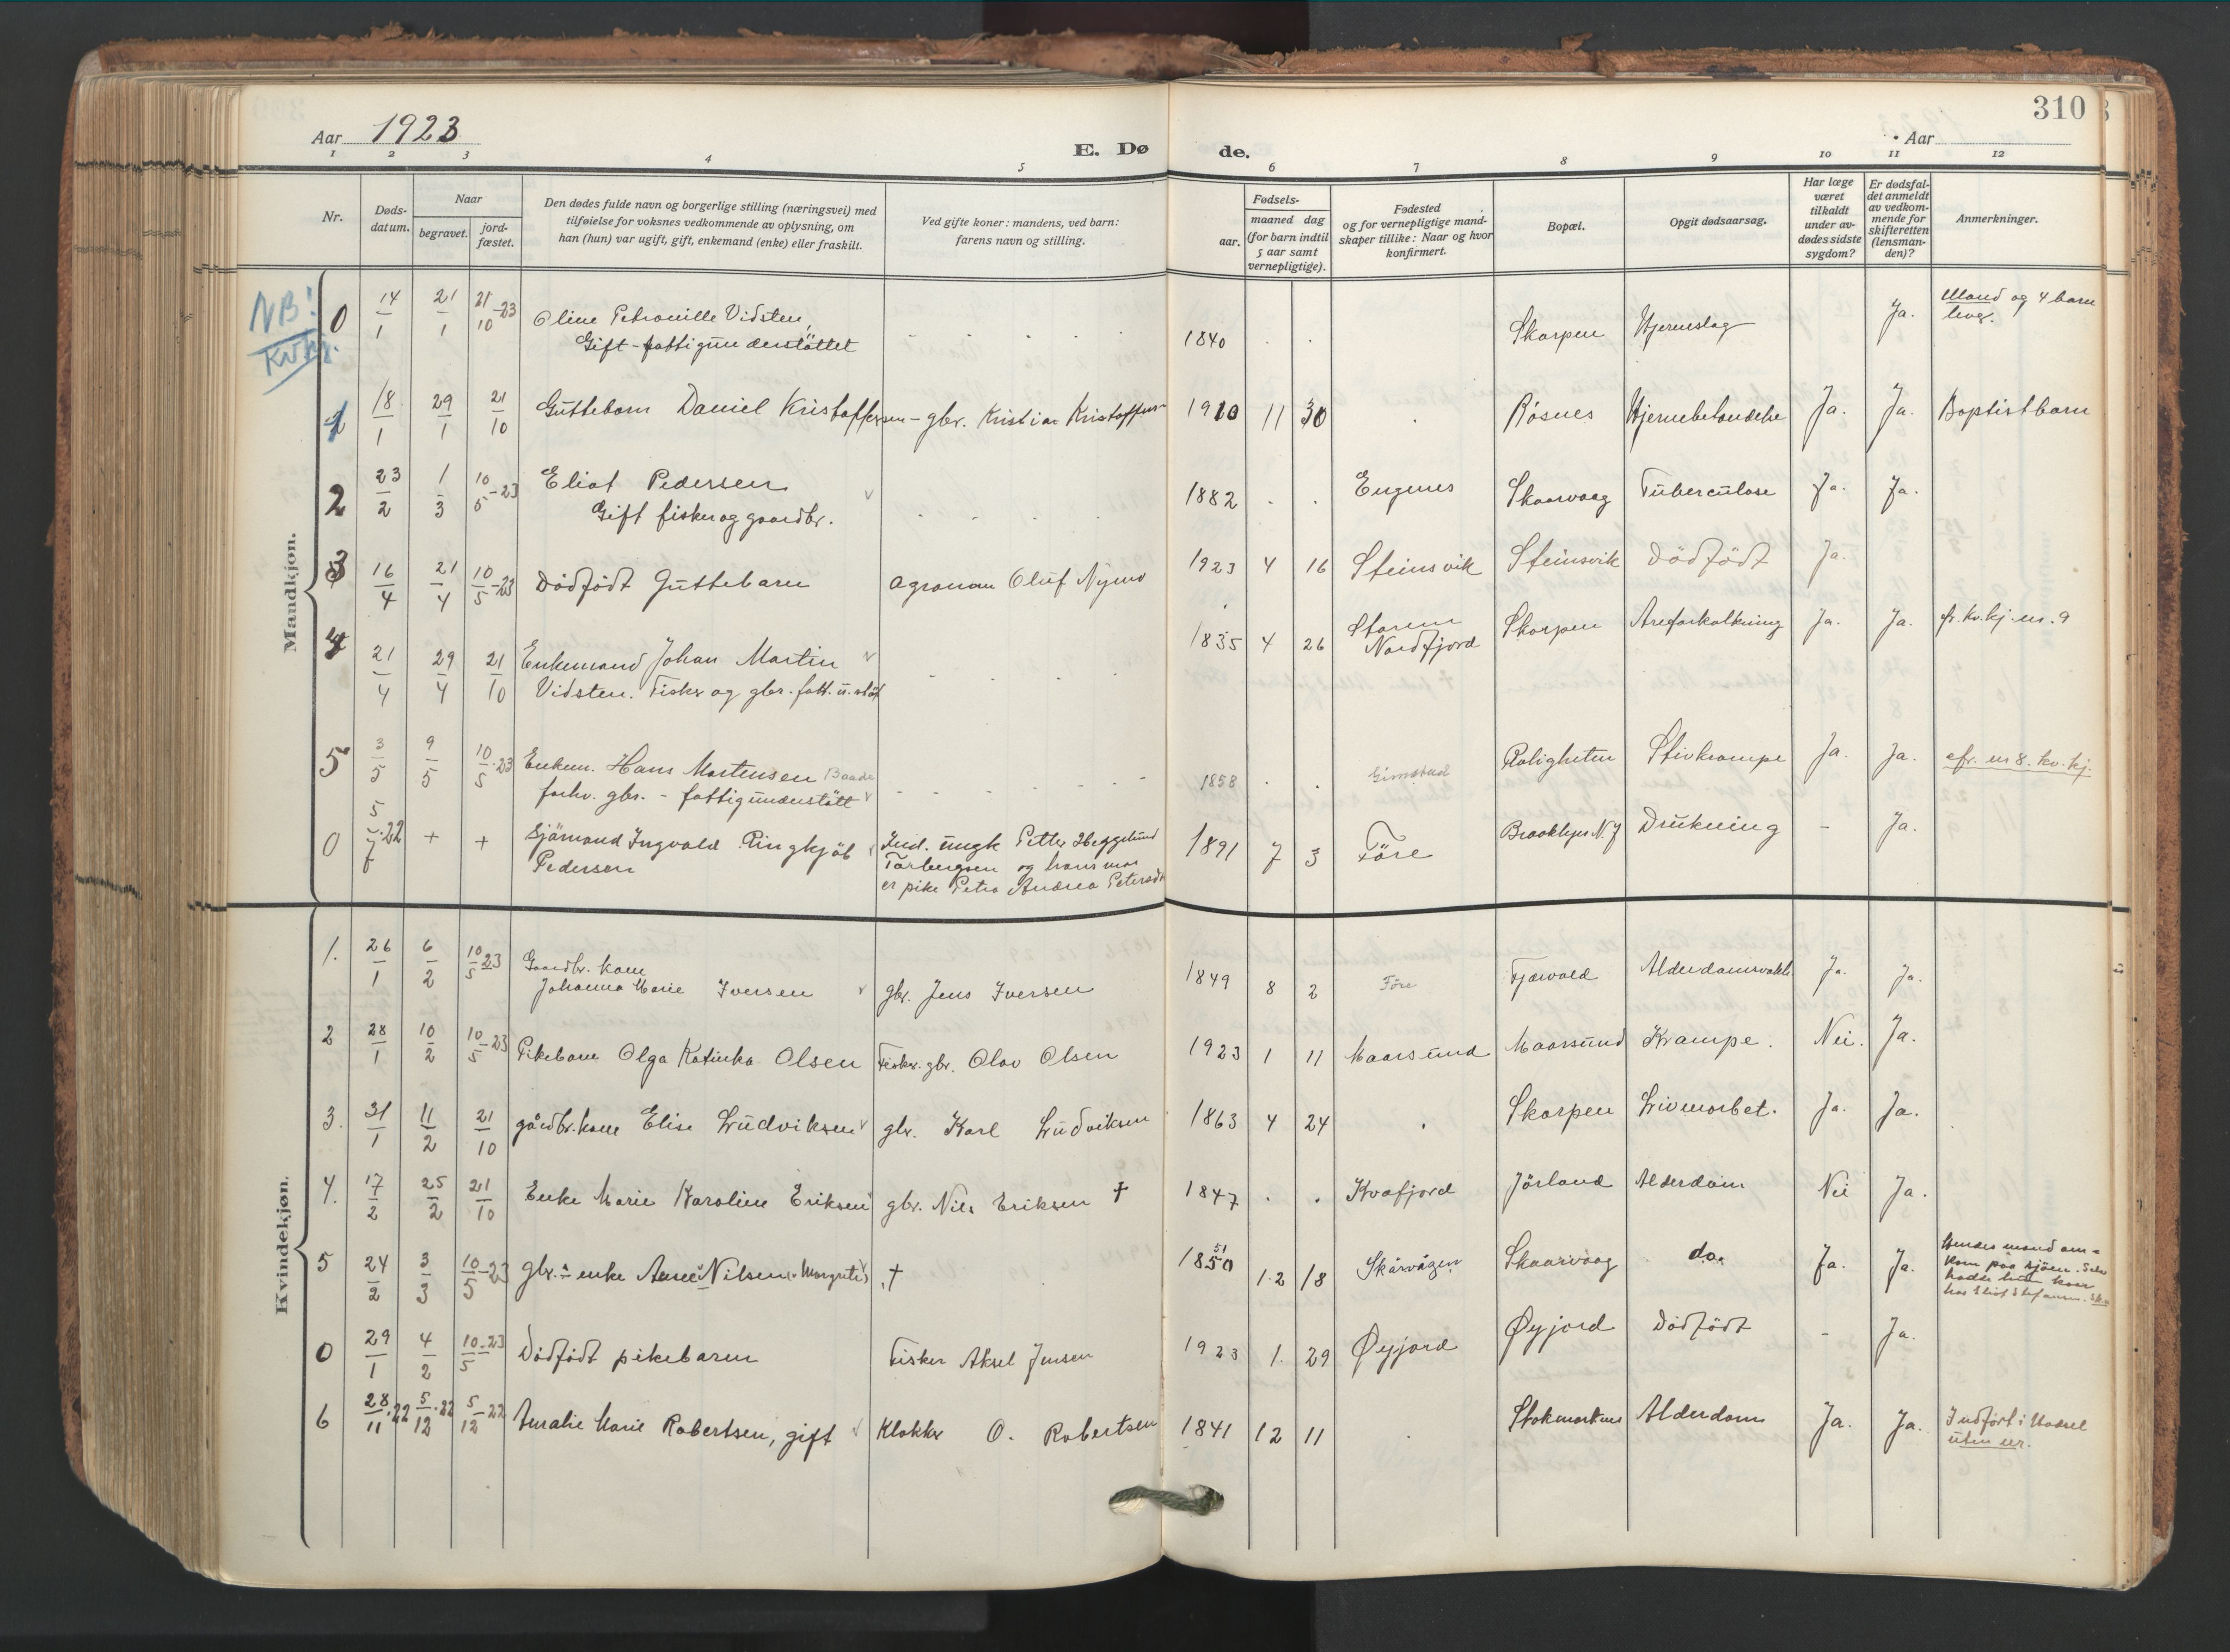 310
Aar 1923
E. Dø
de.
Aar
1 2 3 4 5 6 7 8 9 10 11 12
Nr.
Døds-
datum.
Naar
begravet.
jord-
fæstet.
Den dødes fulde navn og borgerlige stilling (næringsvei) med
tilføielse for voksnes vedkommende av oplysning, om
han (hun) var ugift, gift, enkemand (enke) eller fraskilt.
Ved gifte koner: mandens, ved barn:
farens navn og stilling.
Fødsels-
aar.
maaned dag
(for barn indtil
5 aar samt
vernepligtige).
Fødested
og for vernepligtige mand-
skaper tillike: Naar og hvor
konfirmert.
Bopæl.
Opgit dødsaarsag.
Har læge
været
tilkaldt
under av-
dødes sidste
sygdom?
Er dødsfal-
det anmeldt
av vedkom-
mende for
skifteretten
(lensman-
den)?
Anmerkninger.
Mandkjøn.
NB!
Kvkj.
0 14/1 21/1 21/10-23 Oline Petronille Vidsten, 1840 Skarpen Hjerneslag Ja. Mand og 4 barn
Gift - fattigunderstöttet
lever.
1 18/1 29/1 21/10 Guttebarn Daniel Kristoffersen - gbr. Kristian Kristoffersen 1910 11 30 Rösnes Hjernebetændelse Ja. Ja. Baptistbarn
2 23/2 1/3 10/5-23 Eliot Pedersen 1882 Engenes Skaarvaag Tuberculose Ja. Ja.
Gift fisker og gaardbr.
3 16/4 21/4 10/5-23 Dödfödt Guttebarn Agronom Oluf Nymo 1923 4 16 Steinsvik Steinsvik Dödfödt Ja.
4 21/4 29/4 21/10 Enkemand Johan Martin 1835 4 26 Nordfjord Skarpen Areforkalkning Ja. Ja. kv. kj. nr. 9
Vidsten. Fisker og gbr. fatt. u. stöt
5 3/5 9/5 10/5-23 Enkem. Hans Mortensen 1858 Gimstad Roligheten Stivkrampe Ja. Ja. cfr. nr 8. kv. kj.
forhv. gbr. - fattigunderstött
0 5/7-22 + + Sjömand Ingvald Ringkjöb Ind. ungk Petter Heggelund 1891 7 3 Före Brooklyn N.Y Drukning - Ja.
Pedersen
Torbergsen og hans mor
er pike Petra Andrea Petersdt
Kvindekjøn.
1. 26/1 6/2 10/5 23 Gaardbr. kone
Johanna Marie Iversen gbr. Jens Iversen 1849 8 2 Före Tjærvold Alderdomsvakh. Ja. Ja.
2 28/1 10/2 10/5-23 Pikebarn Olga Katinka Olsen Fisker. gbr. Olav Olsen 1923 1 11 Maarsund Maarsund Krampe. Nei. Ja.
3. 31/1 11/2 21/10 gårdbr. kone Elise Ludviksen gbr. Karl Ludviksen 1863 4 24 Skarpen Livmorbet. Ja. Ja.
4. 17/2 25/2 21/10 Enke Marie Karoline Eriksen gbr. Nils Eriksen † 1847 Kvæfjord Jörland Alderdom Nei Ja.
5 24/2 3/3 10/5-23 gbr. enke Anne Nilsen (Margrete) † 1850 51 12 18 Skårvågen Skaarvaag do. Ja. Ja. Hendes mand om-
kom paa sjöen.
0 29/1 4/2 10/5-23 Dödfödt pikebarn Fisker Aksel Jensen 1923 1. 29 Øyjord Øyjord Dödfödt - Ja.
6 28/11-22 5/12-22 5/12-22 Amalie Marie Robertsen, gift Klokker O. Robertsen 1841 12 11 Stokmarknes Alderdom Ja. Ja. Indfört i Hadsel
uten nr.